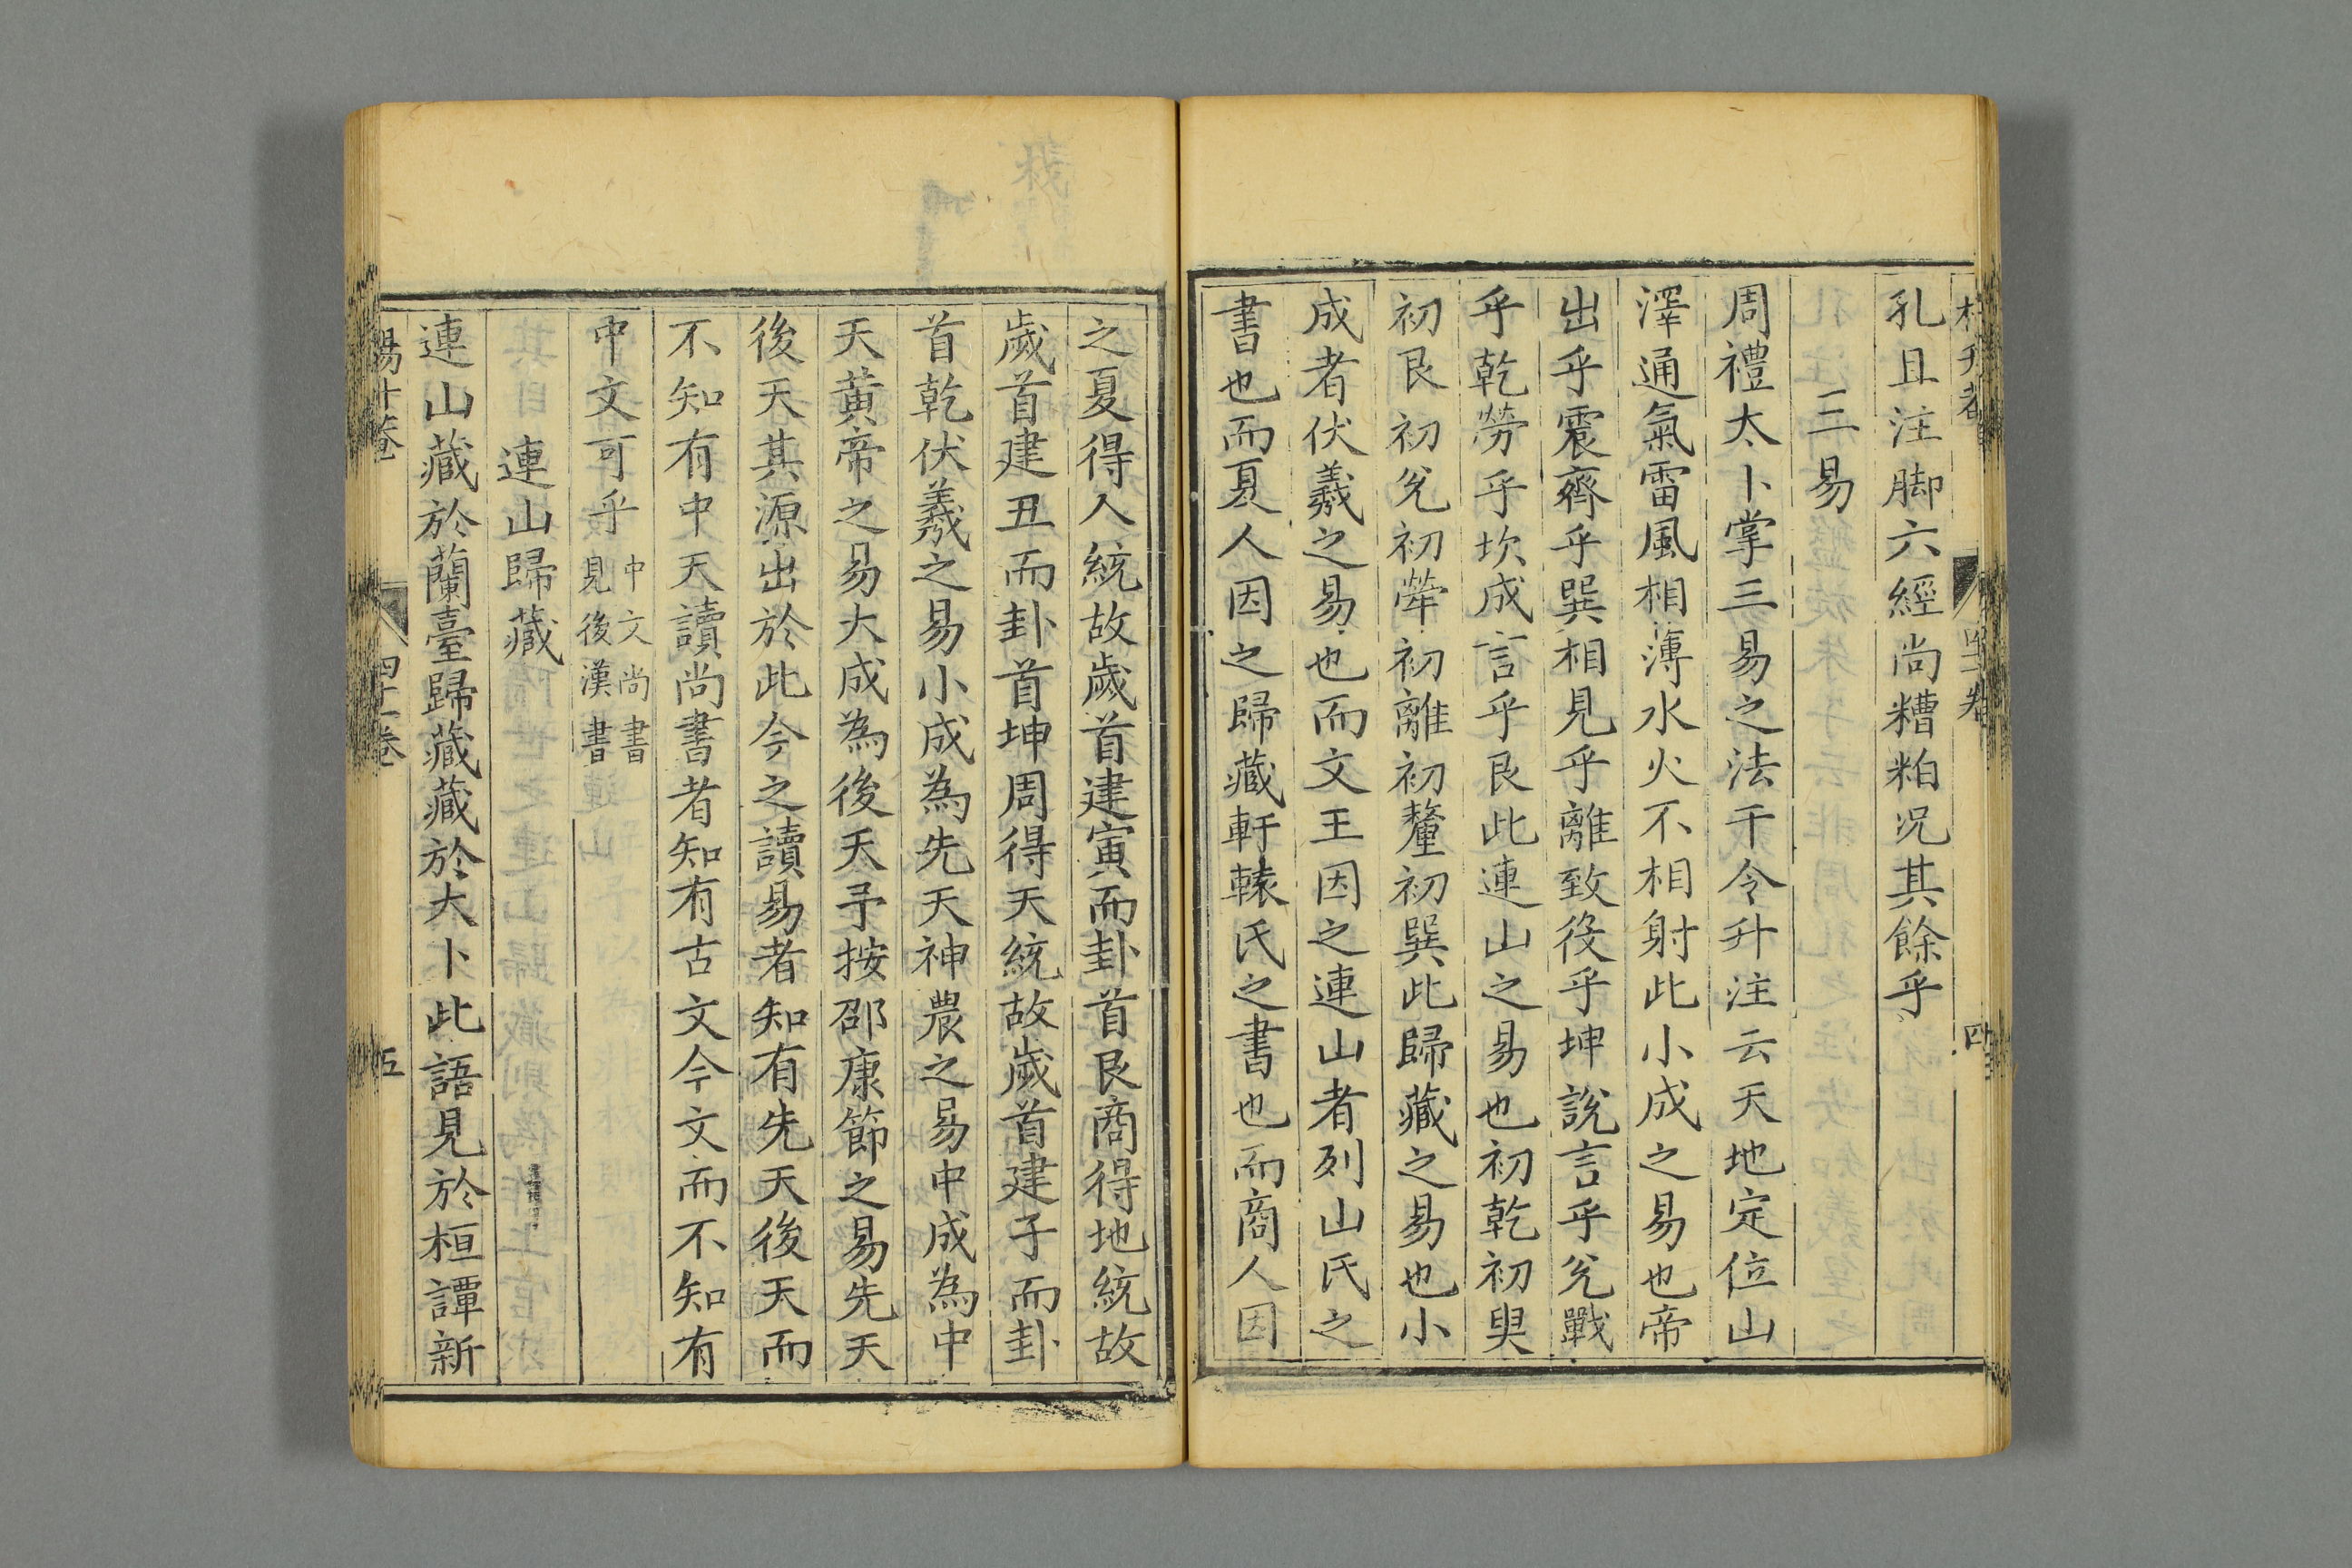 孔且注脚六經尚糟粕况其餘乎
三易
周禮太卜掌三易之法干令升注云天地定位山
澤通氣雷風相薄水火不相射此小成之易也帝
出乎震齊乎巽相見乎離致役乎坤說言乎兌戰
乎乾勞乎坎成言乎艮此連山之易也初乾初㚖
初艮初兌初犖初離初釐初巽此歸藏之易也小
成者伏羲之易也而文王因之連山者列山氏之
書也而夏人因之歸藏軒轅氏之書也而商人因
之夏得人統故歲首建寅而卦首艮商得地統故
歲首建丑而卦首坤周得天統故歲首建子而卦
首乾伏羲之易小成為先天神農之易中成為中
天黄帝之易大成為後天予按邵康節之易先天
後天其源出於此今之讀易者知有先天後天而
不知有中天讀尚書者知有古文今文而不知有
中文可乎中文尚書
見後漢書
連山歸藏
連山藏於蘭臺歸藏藏於大卜此語見於桓譚新
四十一卷
五